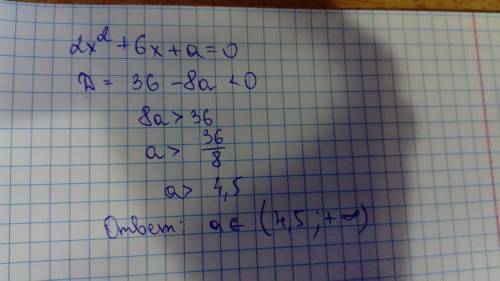 2x² + 6x + a = 0
D = 36 - 8a < 0
8a > 36
a > 36/8
a > 4,5
Ответ: a ∈ (4,5 ; +∞)